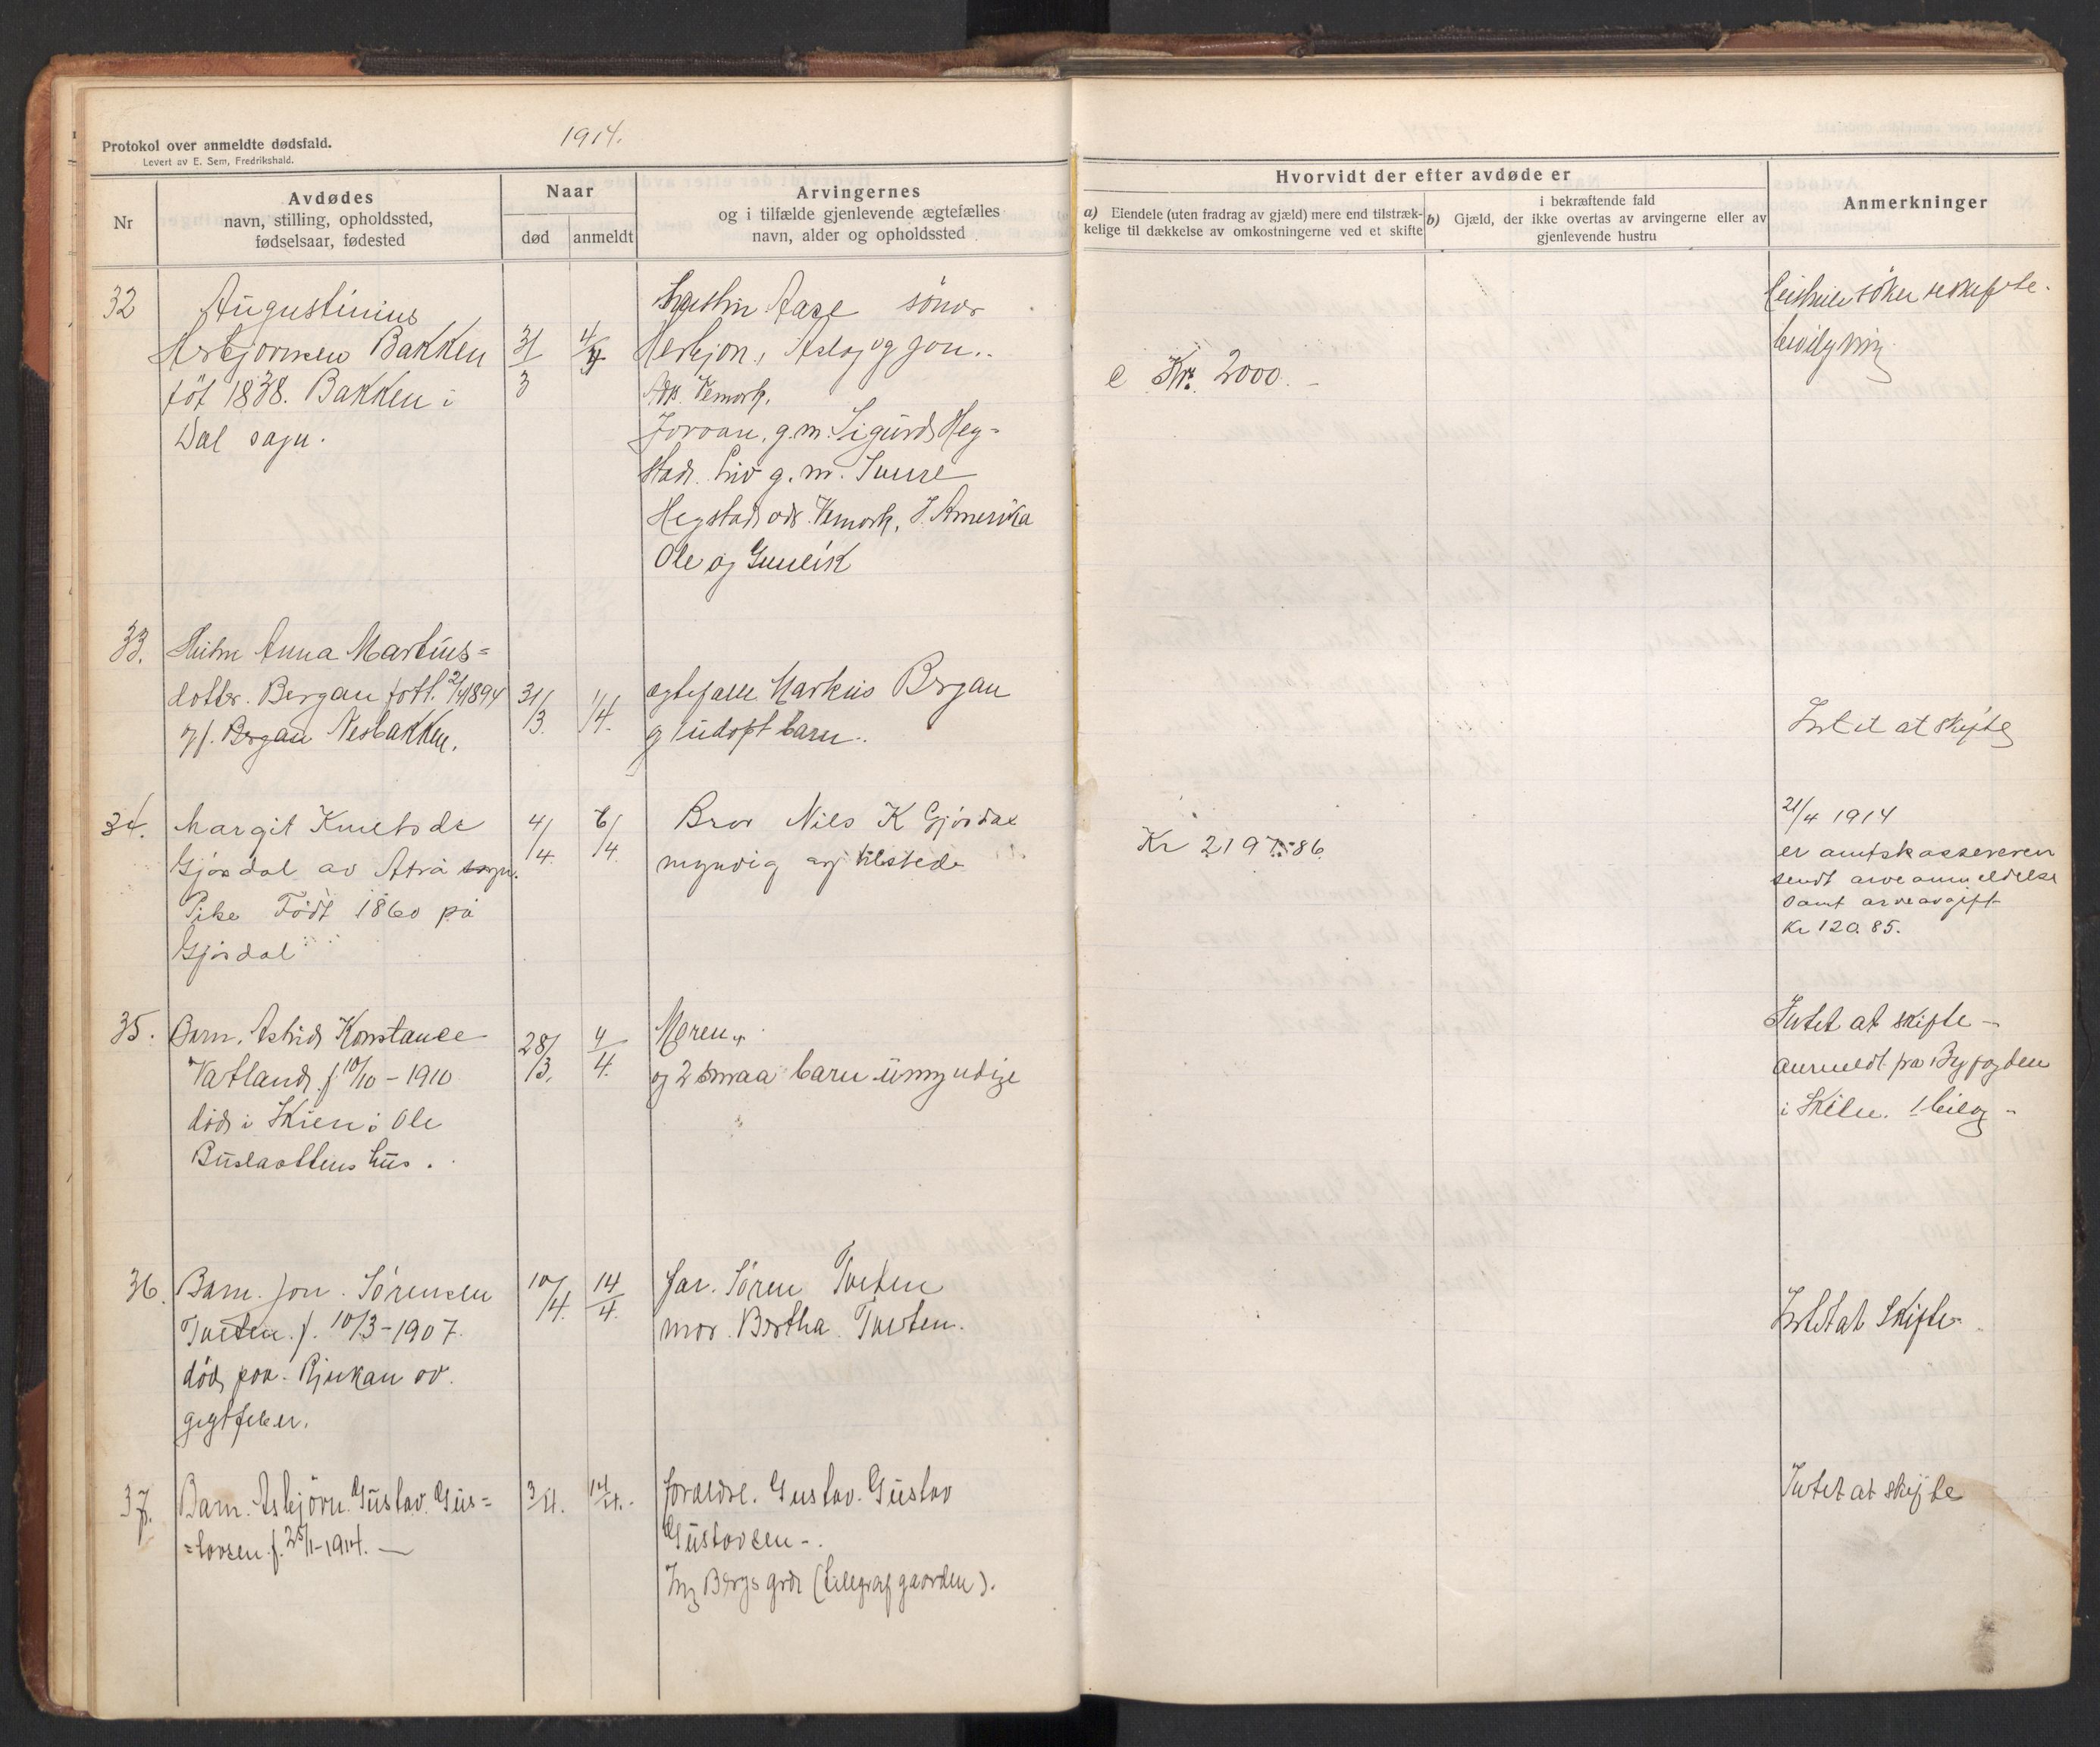 Protokol over anmeldte dødsfald.
Levert av E. Sem, Fredrikshald.
1914.
Nr
Avdødes
navn, stilling, opholdssted,
fødselsaar, fødested
Naar
død
anmeldt
Arvingernes
og i tilfælde gjenlevende ægtefælles
navn, alder og opholdssted
Hvorvidt der efter avdøde er
a) Eiendele (uten fradrag av gjæld) mere end tilstræk-
kelige til dækkelse av omkostningerne ved et skifte
i bekræftende fald
b) Gjæld, der ikke overtas av arvingerne eller av
gjenlevende hustru
Anmerkninger
32
Augustinius
Herbjørnsen Bakken
føt 1838. Bakken i
Dal sogn.
31/3
4/4
Aase sönner
Herbjørn, Aslag og Jon.
Ads. Vemork.
Joroan, g.m. Sigurd Heg=
stad. Liv g.m. Sveine
Hegstad ads. Vemork. I Amerika
Ole og Gunleik
Kr. 2000.-
söker uskifte-
bevilgning
33.
Hustru Anna Martins=
dotter. Bergan født. 2/4 1894
på Bergan Nesbakken.
31/3.
1/4.
ægtefælle Markus Bergan
og 1 udøpt barn.
Intet at skifte
34.
Margit Knutsdr
Gjøsdal av Atrå sogn.
Pike Født 1860 på
Gjøsdal
4/4.
6/4.
Bror Nils K Gjøsdal
myndig og tilstede
Kr 2197.86.
21/4 1914
er amtskassereren
sendt arveanmeldelse
samt arveavgift
Kr 120.85.
35.
Barn. Astrid Konstanse
Vatland f. 10/10-1910
död i Skien i Ole
Buslaattens hus.
28/3.
4/4.
Moren
og 2 smaa barn umyndige
Intet at skifte -
anmeldt fra Byfogden
i Skien. 1 bilag -
36.
Barn. Jon. Sörensen
Tveten. f. 10/3-1907.
död paa Rjukan av
gigtfeber.
10/4.
14/4.
far. Sören Tveten
mor. Bertha Tveten.
Intet at skifte
37.
Barn. Asbjörn Gustav. Gus=
=tavsen. f. 25/1-1914. -
3/4.
14/4.-
foreldre. Gustav. Gustav
Gustavsen-.
Ing Bergs grd (telegrafgaarden).
Intet at skifte